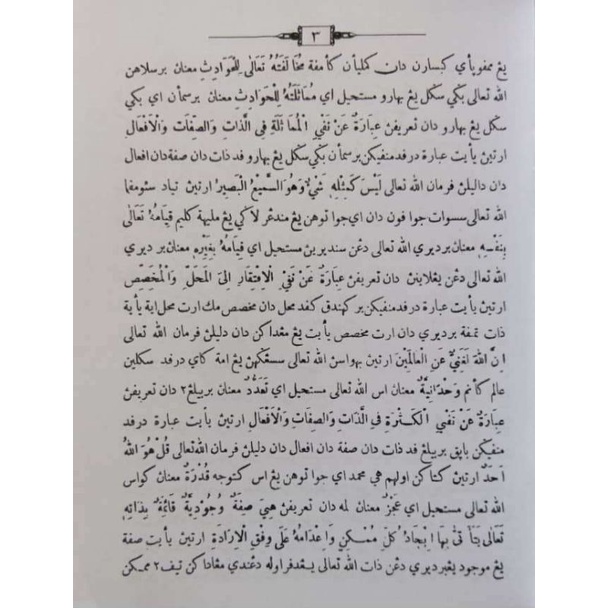 ٣
يڠ ممفوڽاي کبسارن دان کملياٴن کاٴمفة مُخَالَفَتُهُ تَعَالَى لِلْحَوَادِثِ معنان برسلاهن
الله تعالى بݢي سݢل يڠ بهارو مستحيل اي مُمَاثَلَتُهُ لِلْحَوَادِثِ معنان برسماٴن اي بݢي
سݢل يڠ بهارو دان تعريفن عِبَارَةٌ عَنْ نَفْيِ الْمُمَاثَلَةِ فِى الذَّاتِ وَالصِّفَاتِ وَالْاَفْعَالِ
ارتين ياٴيت عبارة درفد منفيکن برسماٴن بݢي سݢل يڠ بهارو فد ذات دان صفة دان افعال
دان داليلن فرمان الله تعالى لَيْسَ كَمِثْلِهِ شَيْءٌ وَهُوَ السَّمِيْعُ الْبَصِيْرُ ارتين تياد سئومفما
الله تعالى سسوات جوا فون دان اي جوا توهن يڠ مندڠر لاݢي يڠ مليهة کليم قِيَامُهُ تَعَالَى
بِنَفْسِهِ معنان برديري الله تعالى دڠن سنديرين مستحيل اي قِيَامُهُ بِغَيْرِهِ معنان برديري
الله تعالى دڠن يڠلاينن دان تعريفن عِبَارَةٌ عَنْ نَفْيِ الْاِفْتِقَارِ اِلَى الْمَحَلِّ وَالْمُخَصِّصِ
ارتين ياٴيت عبارة درفد منفيکن برکهندق کفد محل دان مخصص مك ارت محل اية ياٴية
ذات تمفة برديري دان ارت مخصص ياٴيت يڠ مڠداکن دان دليلن فرمان الله تعالى
اِنَّ اللهَ لَغَنِيٌّ عَنِ الْعَالَمِيْنَ ارتين بهواسن الله تعالى سسڠݢهن يڠ امة کاي درفد سکلين
عالم کاٴنم وَحْدَانِيَّةٌ معنان اس الله تعالى مستحيل اي تَعَدُّدٌ معنان بربيلڠ٢ دان تعريفن
عِبَارَةٌ عَنْ نَفْيِ الْكَثْرَةِ فِى الذَّاتِ وَالصِّفَاتِ وَالْاَفْعَالِ ارتين ياٴيت عبارة درفد
منفيکن باڽق بربيلڠ فد ذات دان صفة دان افعال دان دليلن فرمان الله تعالى قُلْ هُوَ اللهُ
اَحَدٌ ارتين کتاکن اولهم هي محمد اي جوا توهن يڠ اس کتوجه قُدْرَةٌ معنان کواس
الله تعالى مستحيل اي عَجْزٌ معنان لمه دان تعريفن هِيَ صِفَةٌ وُجُوْدِيَّةٌ قَائِمَةٌ بِذَاتِهِ
تَعَالَى يَتَأَتَّى بِهَا اِيْجَادُ كُلِّ مُمْكِنٍ وَاِعْدَامُهُ عَلَى وِفْقِ الْاِرَادَةِ ارتين ياٴيت صفة
يڠ موجود يڠبرديري دڠن ذات الله تعالى يڠدفراوله دڠندي مڠاداکن تيف٢ ممکن